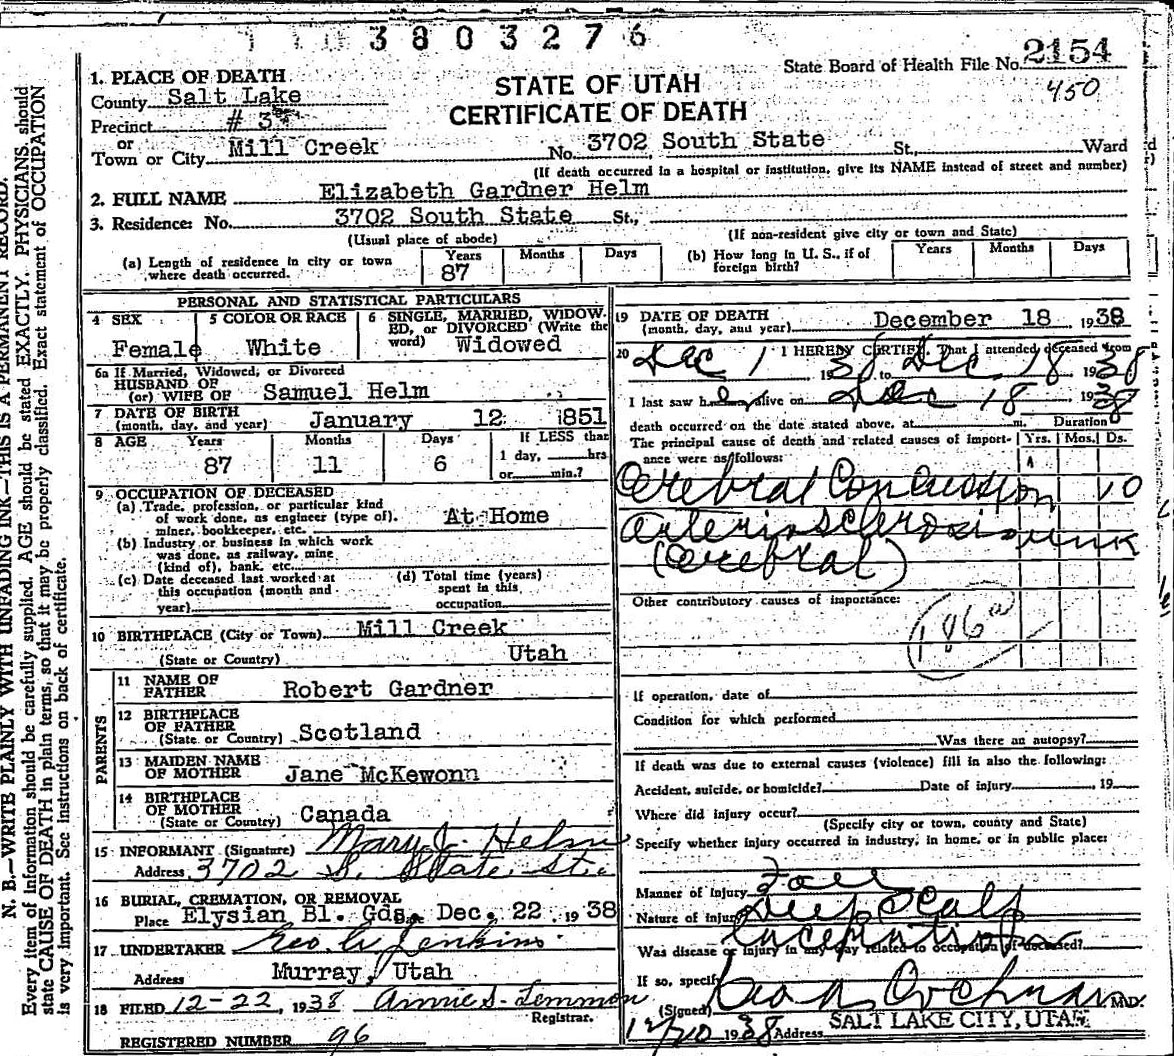 3803276
State Board of Health File No. 2154
450
STATE OF UTAH
CERTIFICATE OF DEATH
1. PLACE OF DEATH
County Salt Lake
Precinct # 3
or
Town or City Mill Creek No. 3702 South State St., Ward
(If death occurred in a hospital or institution, give its NAME instead of street and number)
2. FULL NAME Elizabeth Gardner Helm
3. Residence: No. 3702 South State St.,
(Usual place of abode) (If non-resident give city or town and State)
(a) Length of residence in city or town where death occurred. Years 87 Months Days
(b) How long in U. S., if of foreign birth? Years Months Days
PERSONAL AND STATISTICAL PARTICULARS
4 SEX Female
5 COLOR OR RACE White
6 SINGLE, MARRIED, WIDOWED, or DIVORCED (Write the word) Widowed
6a If Married, Widowed, or Divorced
HUSBAND OF
(or) WIFE OF Samuel Helm
7 DATE OF BIRTH
(month, day, and year) January 12 1851
8 AGE Years 87 Months 11 Days 6 If LESS than 1 day, hrs or min.?
9 OCCUPATION OF DECEASED
(a) Trade, profession, or particular kind of work done, as engineer (type of), miner, bookkeeper, etc. At Home
(b) Industry or business in which work was done, as railway, mine (kind of), bank, etc.
(c) Date deceased last worked at this occupation (month and year)
(d) Total time (years) spent in this occupation
10 BIRTHPLACE (City or Town) Mill Creek
(State or Country) Utah
PARENTS
11 NAME OF FATHER Robert Gardner
12 BIRTHPLACE OF FATHER
(State or Country) Scotland
13 MAIDEN NAME OF MOTHER Jane McKewonn
14 BIRTHPLACE OF MOTHER
(State or Country) Canada
15 INFORMANT (Signature) Mary J. Helm
Address 3702 S. State St.
16 BURIAL, CREMATION, OR REMOVAL
Place Elysian Bl. Gds. Dec. 22, 1938
17 UNDERTAKER Geo. A. Jenkins
Address Murray, Utah
18 FILED 12-22, 1938 Annie S. Lemmon
Registrar.
REGISTERED NUMBER 96
19 DATE OF DEATH
(month, day, and year) December 18 1938
20 I HEREBY CERTIFY, That I attended deceased from
Dec 1 1938 to Dec. 18 1938
I last saw her alive on Dec 18 1938
death occurred on the date stated above, at m. Duration
The principal cause of death and related causes of importance were as follows: Yrs. Mos. Ds.
Cerebral Concussion 10
Arteriosclerosis unk
(Cerebral)
Other contributory causes of importance:
186a
If operation, date of
Condition for which performed
Was there an autopsy?
If death was due to external causes (violence) fill in also the following:
Accident, suicide, or homicide? Date of injury , 19
Where did injury occur?
(Specify city or town, county and State)
Specify whether injury occurred in industry, in home, or in public place:
Manner of injury Fall
Nature of injury Deep Scalp
Lacerations
Was disease or injury in any way related to occupation of deceased?
If so, specify
(Signed) M.D.
12/20 1938 Address SALT LAKE CITY, UTAH
N. B.—WRITE PLAINLY WITH UNFADING INK—THIS IS A PERMANENT RECORD.
Every item of information should be carefully supplied. AGE should be stated EXACTLY. PHYSICIANS should
state CAUSE OF DEATH in plain terms, so that it may be properly classified. Exact statement of OCCUPATION
is very important. See instructions on back of certificate.